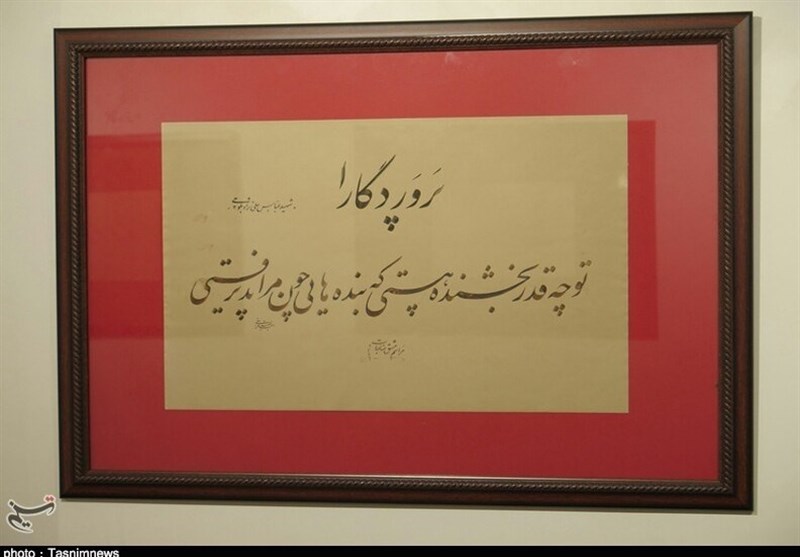 پَروَردگارا
تو چه قدر بخشنده هستی که بنده هایی چون مرا پذیرفتی
تسنیم
photo : Tasnimnews